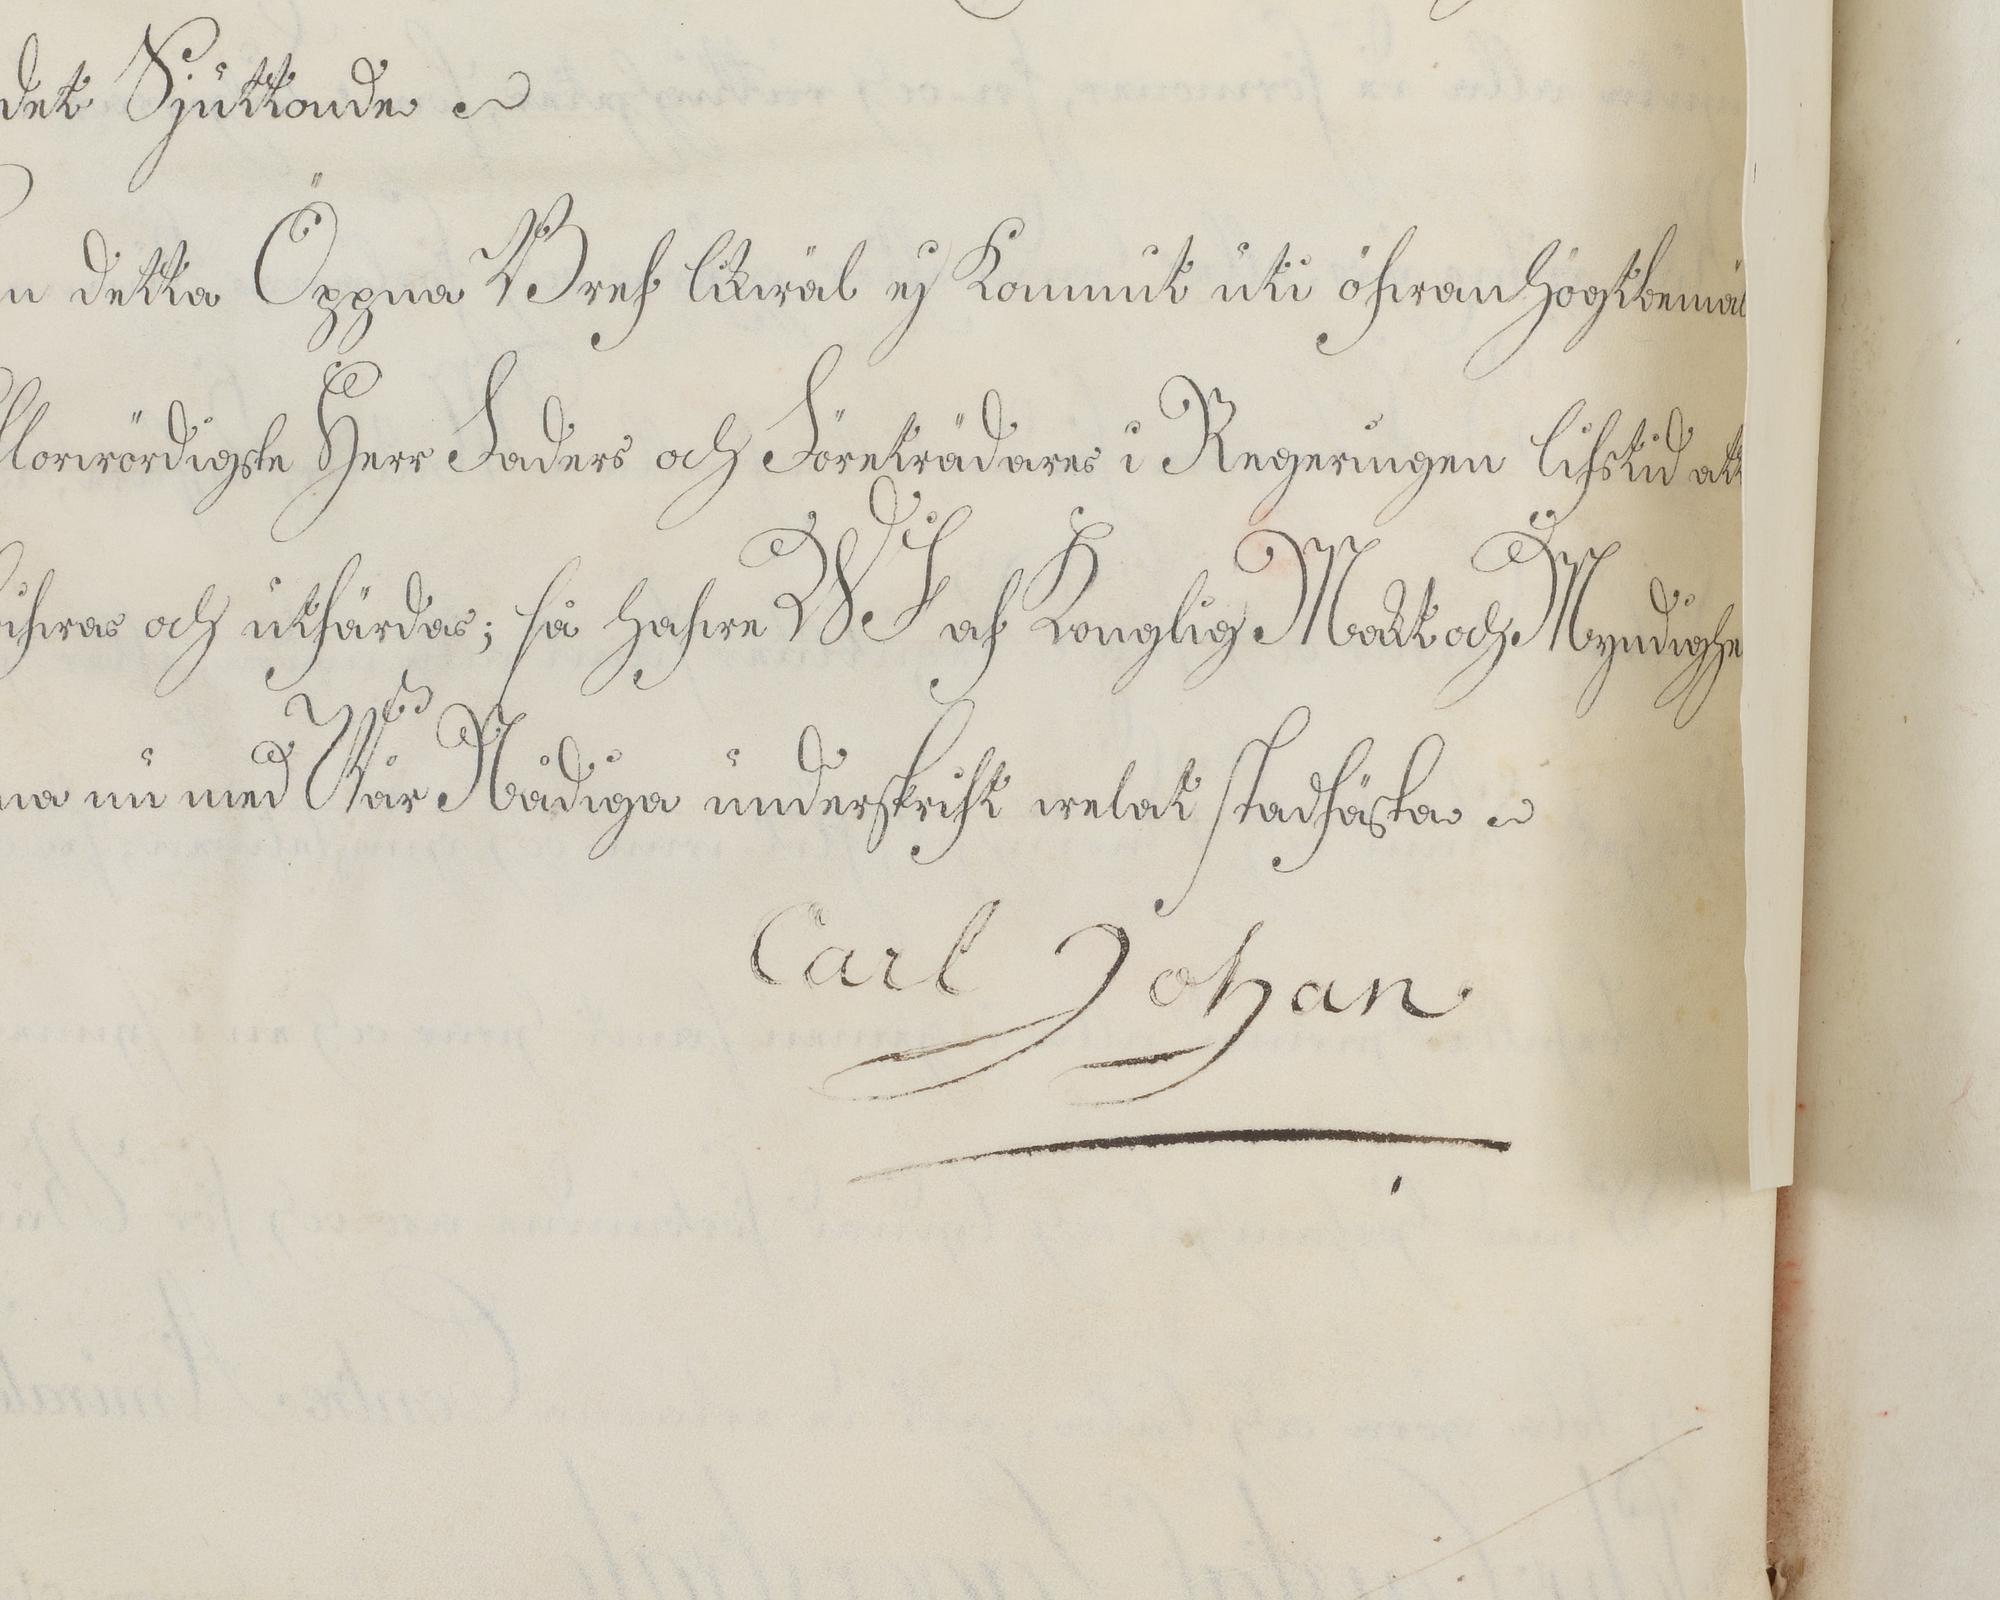 det Sjuttonde
n detta Öppna Bref likwäl ej kommit uti öfwanhögtbemäl
Glorwördigste Herr Faders och Företrädares i Regeringen lifstid att
ifwas och utfärdas; så hafwe WI af Konglig Makt och Myndighe
na nu med Wår Nådiga underskrift welat stadfästa
Carl Johan